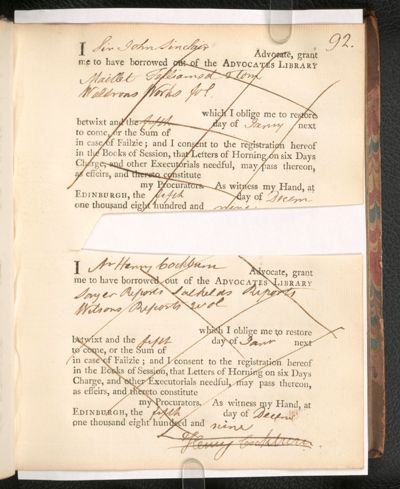 92.
I Sir John Sinclair Advocate, grant
me to have borrowed out of the ADVOCATES LIBRARY
Maillet
Works fol.
which I oblige me to restore
betwixt and the fifth day of Janry next
to come, or the Sum of
in case of Failzie; and I consent to the registration hereof
in the Books of Session, that Letters of Horning on six Days
Charge, and other Executorials needful, may pass thereon,
as effeirs, and thereto constitute
my Procurators. As witness my Hand, at
EDINBURGH, the fifth day of Decem
one thousand eight hundred and nine
I Mr Henry Cockburn Advocate, grant
me to have borrowed out of the ADVOCATES LIBRARY
Sayer Reports Salkelds Reports
Wilsons Reports 2 vol
which I oblige me to restore
betwixt and the fifth day of Janr next
to come, or the Sum of
in case of Failzie; and I consent to the registration hereof
in the Books of Session, that Letters of Horning on six Days
Charge, and other Executorials needful, may pass thereon,
as effeirs, and thereto constitute
my Procurators. As witness my Hand, at
EDINBURGH, the fifth day of Decem
one thousand eight hundred and nine
Henry Cockburn